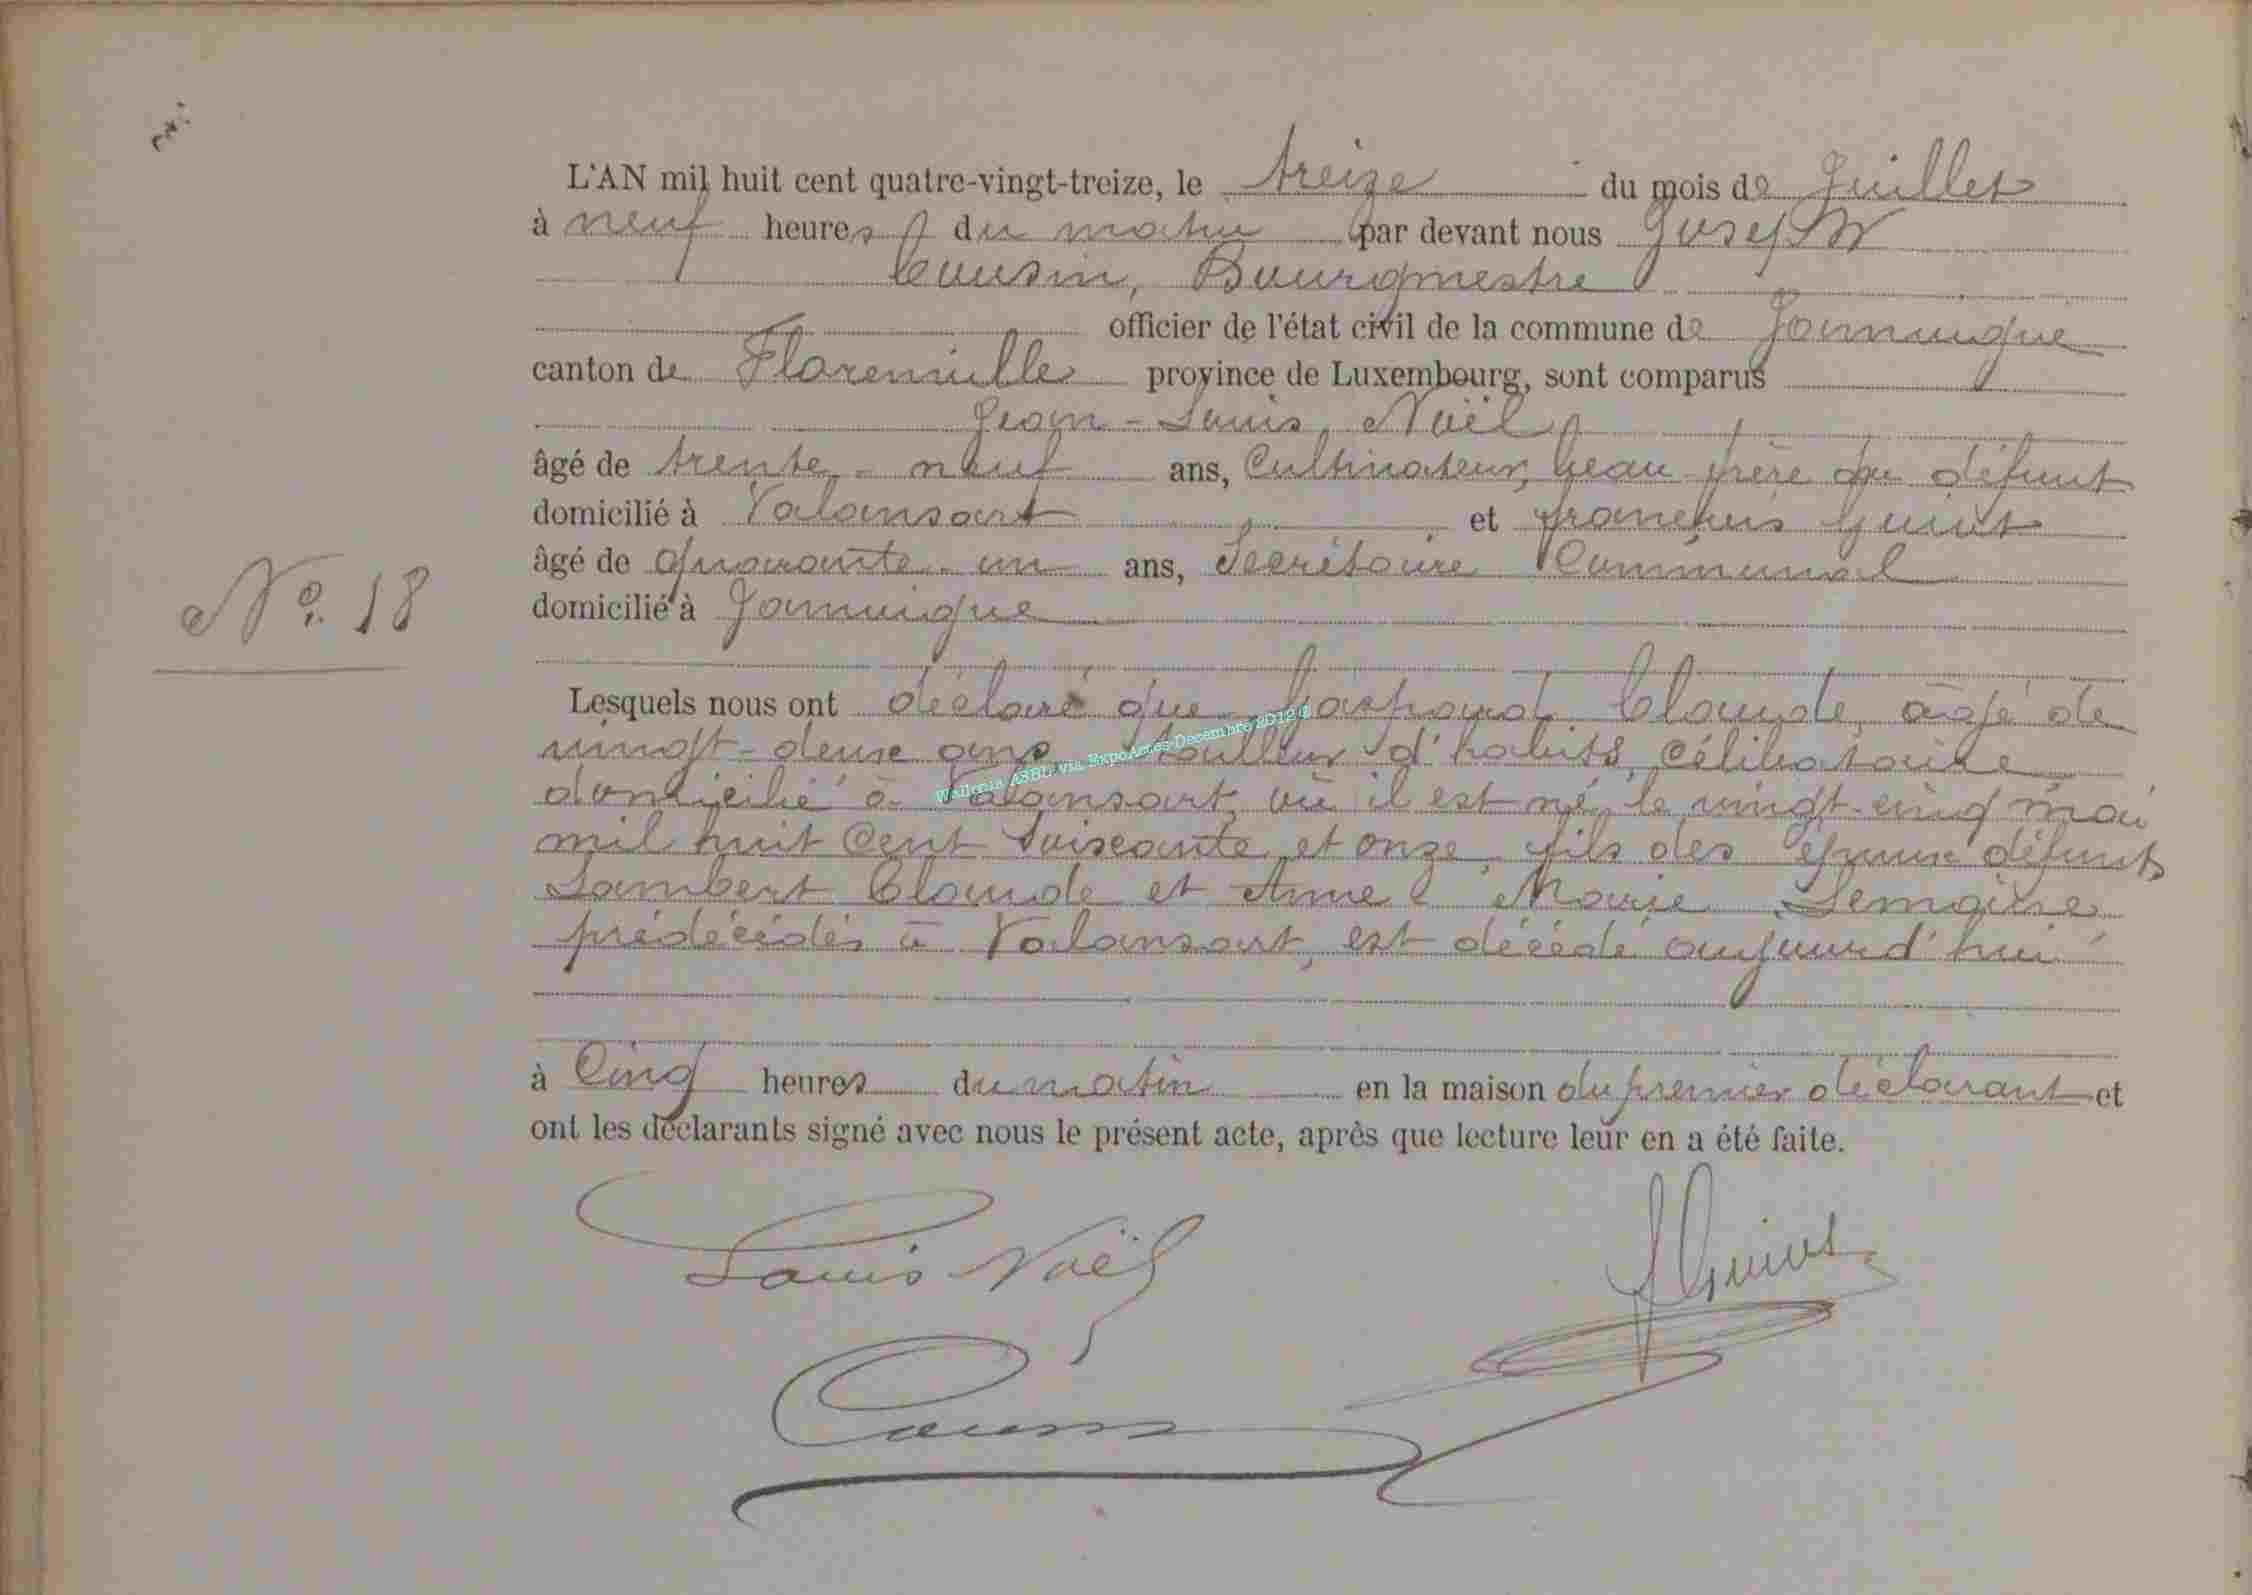 L'AN mil huit cent quatre-vingt-treize, le treize du mois de Juillet
à neuf heures du matin par devant nous Joseph
Cousin, Bourgmestre
officier de l'état civil de la commune de Jamoigne
canton de Florenville province de Luxembourg, sont comparus
Jean-Louis Noël
âgé de trente-neuf ans, Cultivateur, beau-frère du défunt
domicilié à Valansart et françois Guiot
âgé de quarante-un ans, Secrétaire Communal
N° 18
domicilié à Jamoigne
Lesquels nous ont déclaré que Gaspard Claude, âgé de
vingt-deux ans, tailleur d'habits, célibataire
Wallonia ASBL via ExpoActes-Decembre 2012 @
domicilié à Valansart, où il est né, le vingt-cinq mai
mil huit cent soixante et onze, fils des époux défunts
Lambert Claude et Anne Marie Lemaire
prédécédés à Valansart, est décédé aujourd'hui
à Cinq heures du matin en la maison du premier déclarant et
ont les déclarants signé avec nous le présent acte, après que lecture leur en a été faite.
Louis Noël
f Guiot
Cousin